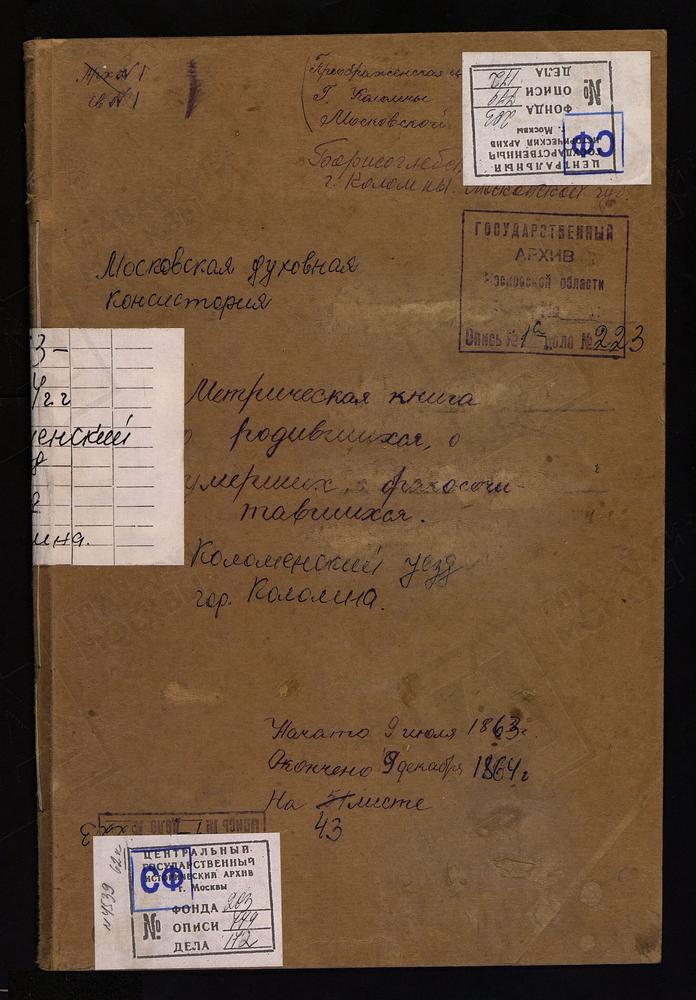 Арх № 1
св № 1
Преображенская
г. Коломны
Московской
г. Коломны. Московской губ.
ЦЕНТРАЛЬНЫЙ
ГОСУДАРСТВЕННЫЙ
ИСТОРИЧЕСКИЙ АРХИВ
г. Москвы
СФ
№
ФОНДА 203
ОПИСИ 779
ДЕЛА 172
ГОСУДАРСТВЕННЫЙ
АРХИВ
Московской области
Опись № 1а дело № 223
Московская духовная
консистория
3-
4 г г
енский
ина.
Метрическая книга
о родившихся, о
умерших, о бракосочи-
тавшихся.
Коломенский уезд
гор. Коломна.
Начато 9 июля 1863 г.
Окончено 9 декабря 1864 г
На 51 листе
43
ЦЕНТРАЛЬНЫЙ
ГОСУДАРСТВЕННЫЙ
ИСТОРИЧЕСКИЙ АРХИВ
г. Москвы
СФ
№
ФОНДА 203
ОПИСИ 779
ДЕЛА 172